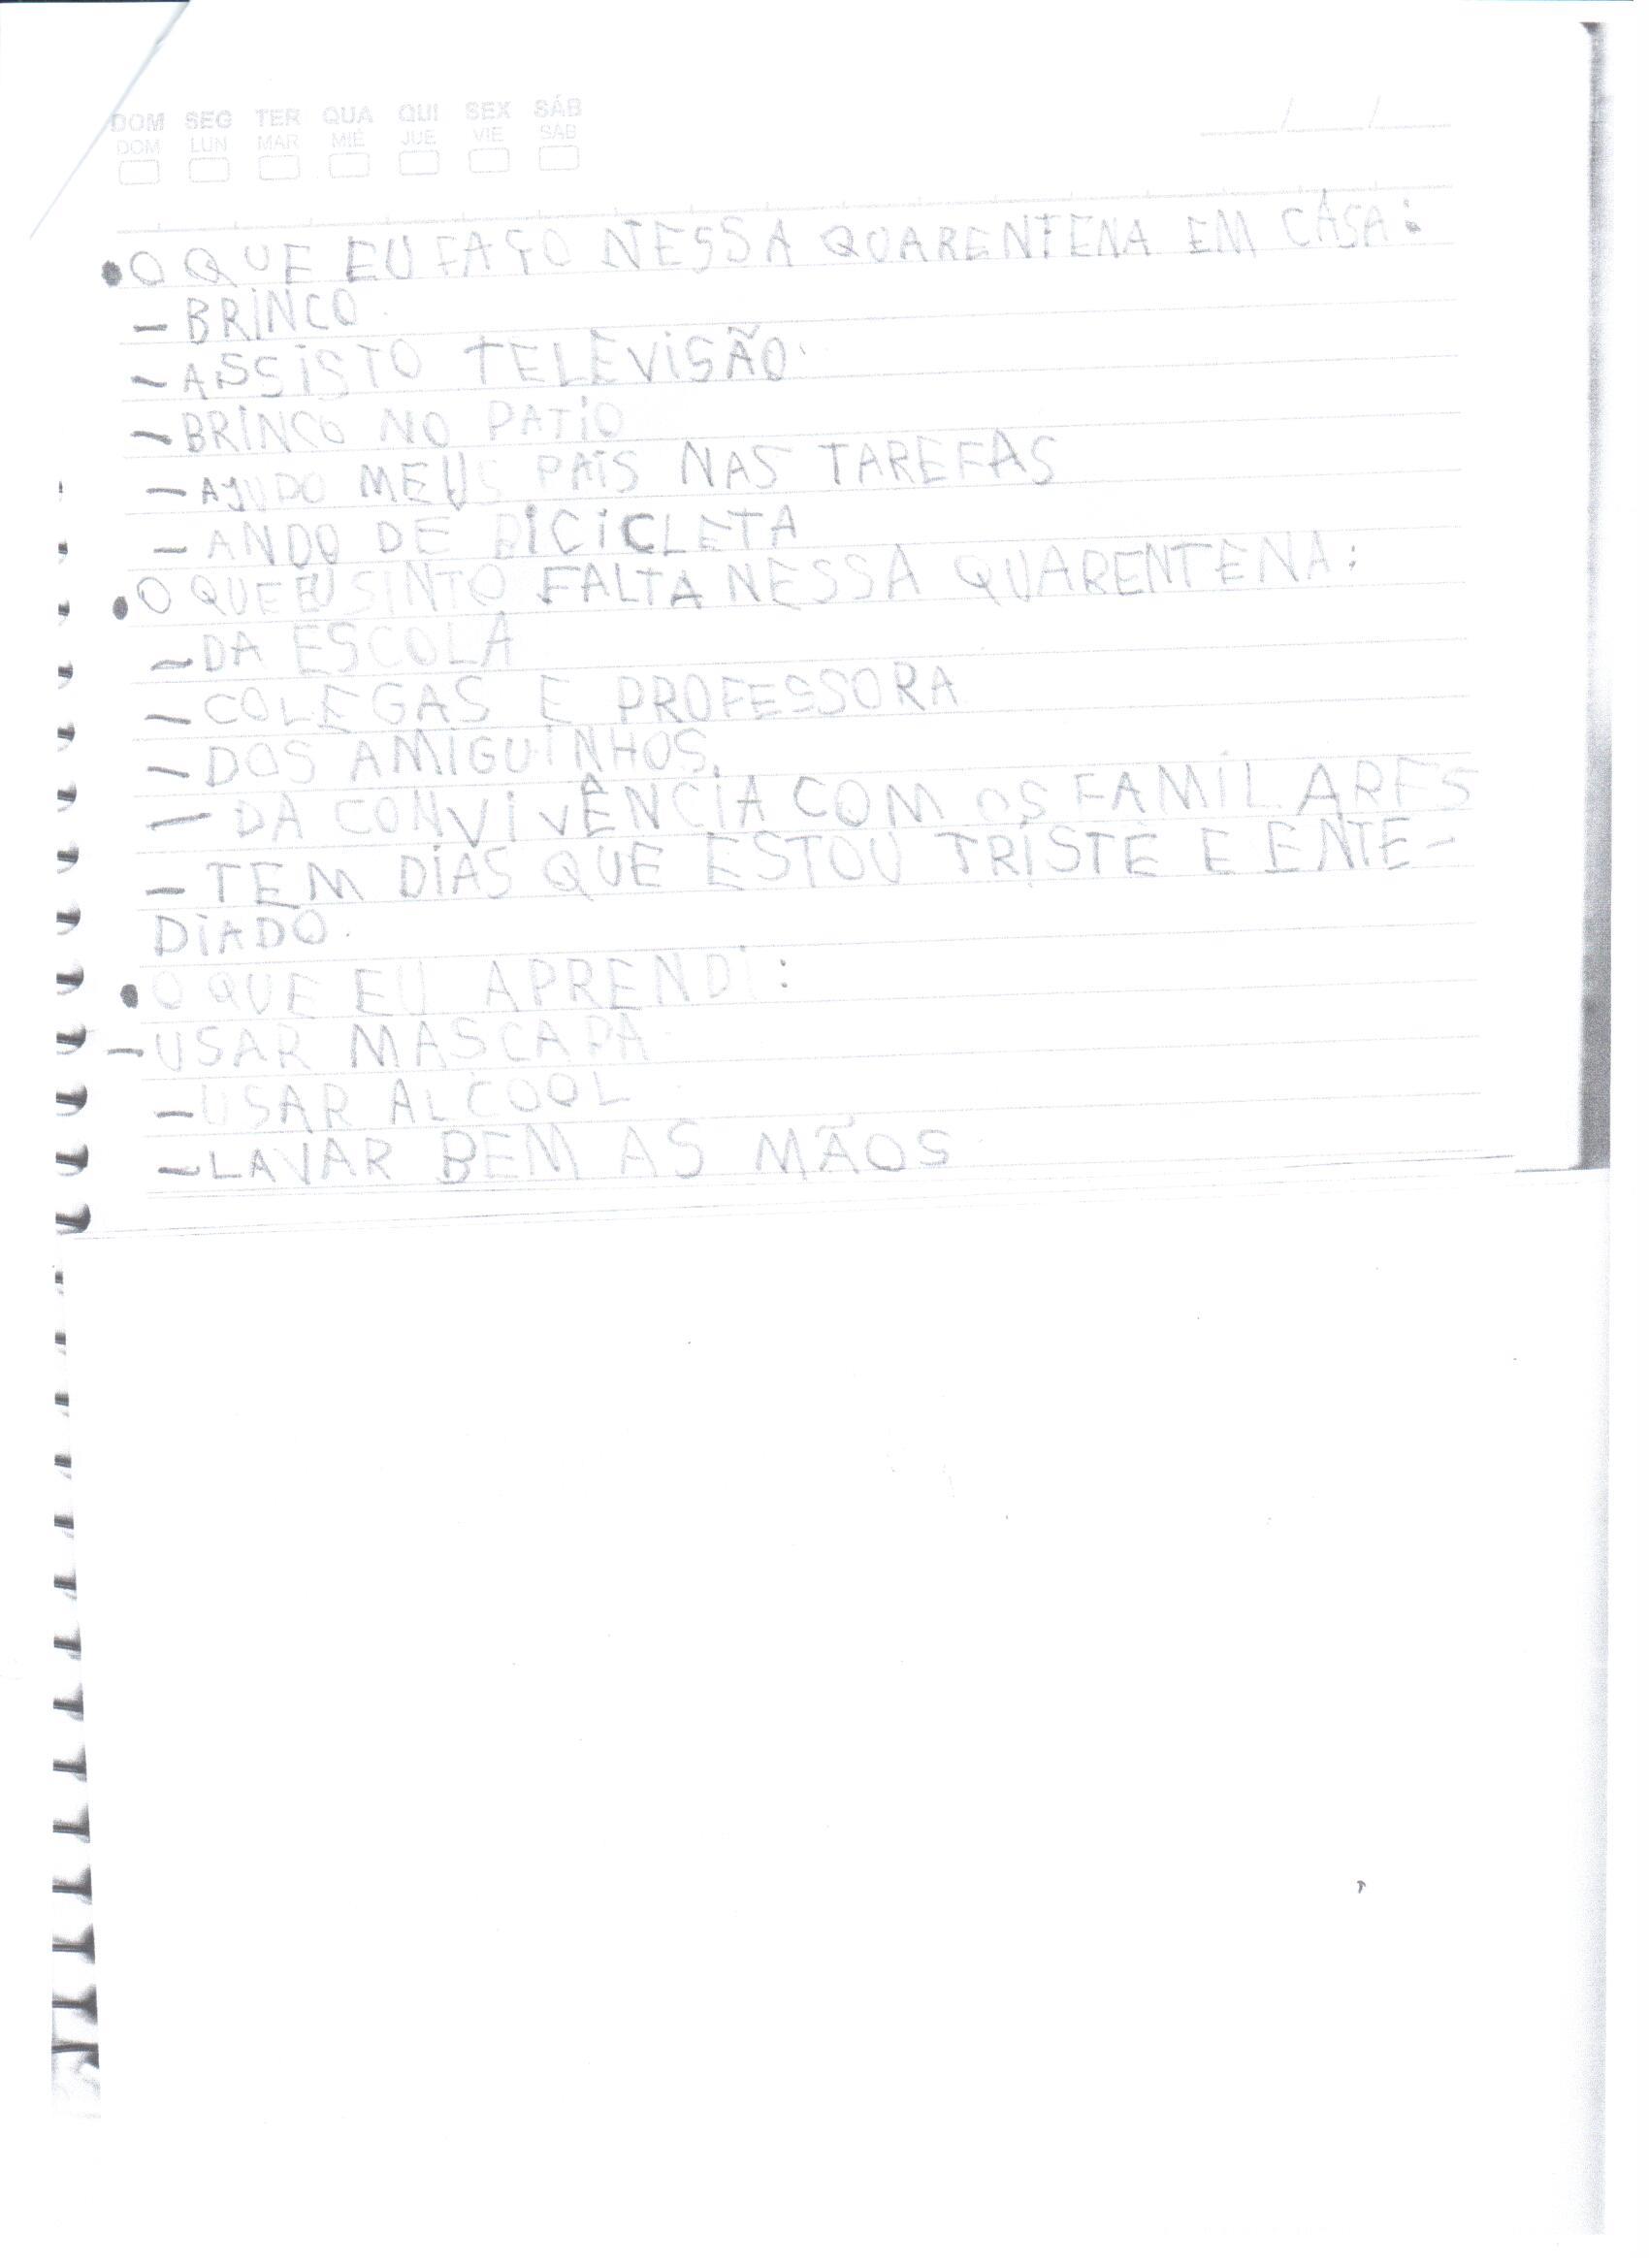 DOM SEG TER QUA QUI SEX SÁB
DOM LUN MAR MIÉ JUE VIE SÁB
•O QUE EU FAÇO NESSA QUARENTENA EM CASA:
- BRINCO.
- ASSISTO TELEVISÃO.
- BRINCO NO PATIO
- AJUDO MEUS PAIS NAS TAREFAS
- ANDO DE BICICLETA
•O QUE EU SINTO FALTA NESSA QUARENTENA:
- DA ESCOLA
- COLEGAS E PROFESSORA
- DOS AMIGUINHOS.
- DA CONVIVÊNCIA COM OS FAMILARES
- TEM DIAS QUE ESTOU TRISTE E ENTE-
DIADO.
•O QUE EU APRENDI:
- USAR MASCARA
- USAR ALCOOL
- LAVAR BEM AS MÃOS